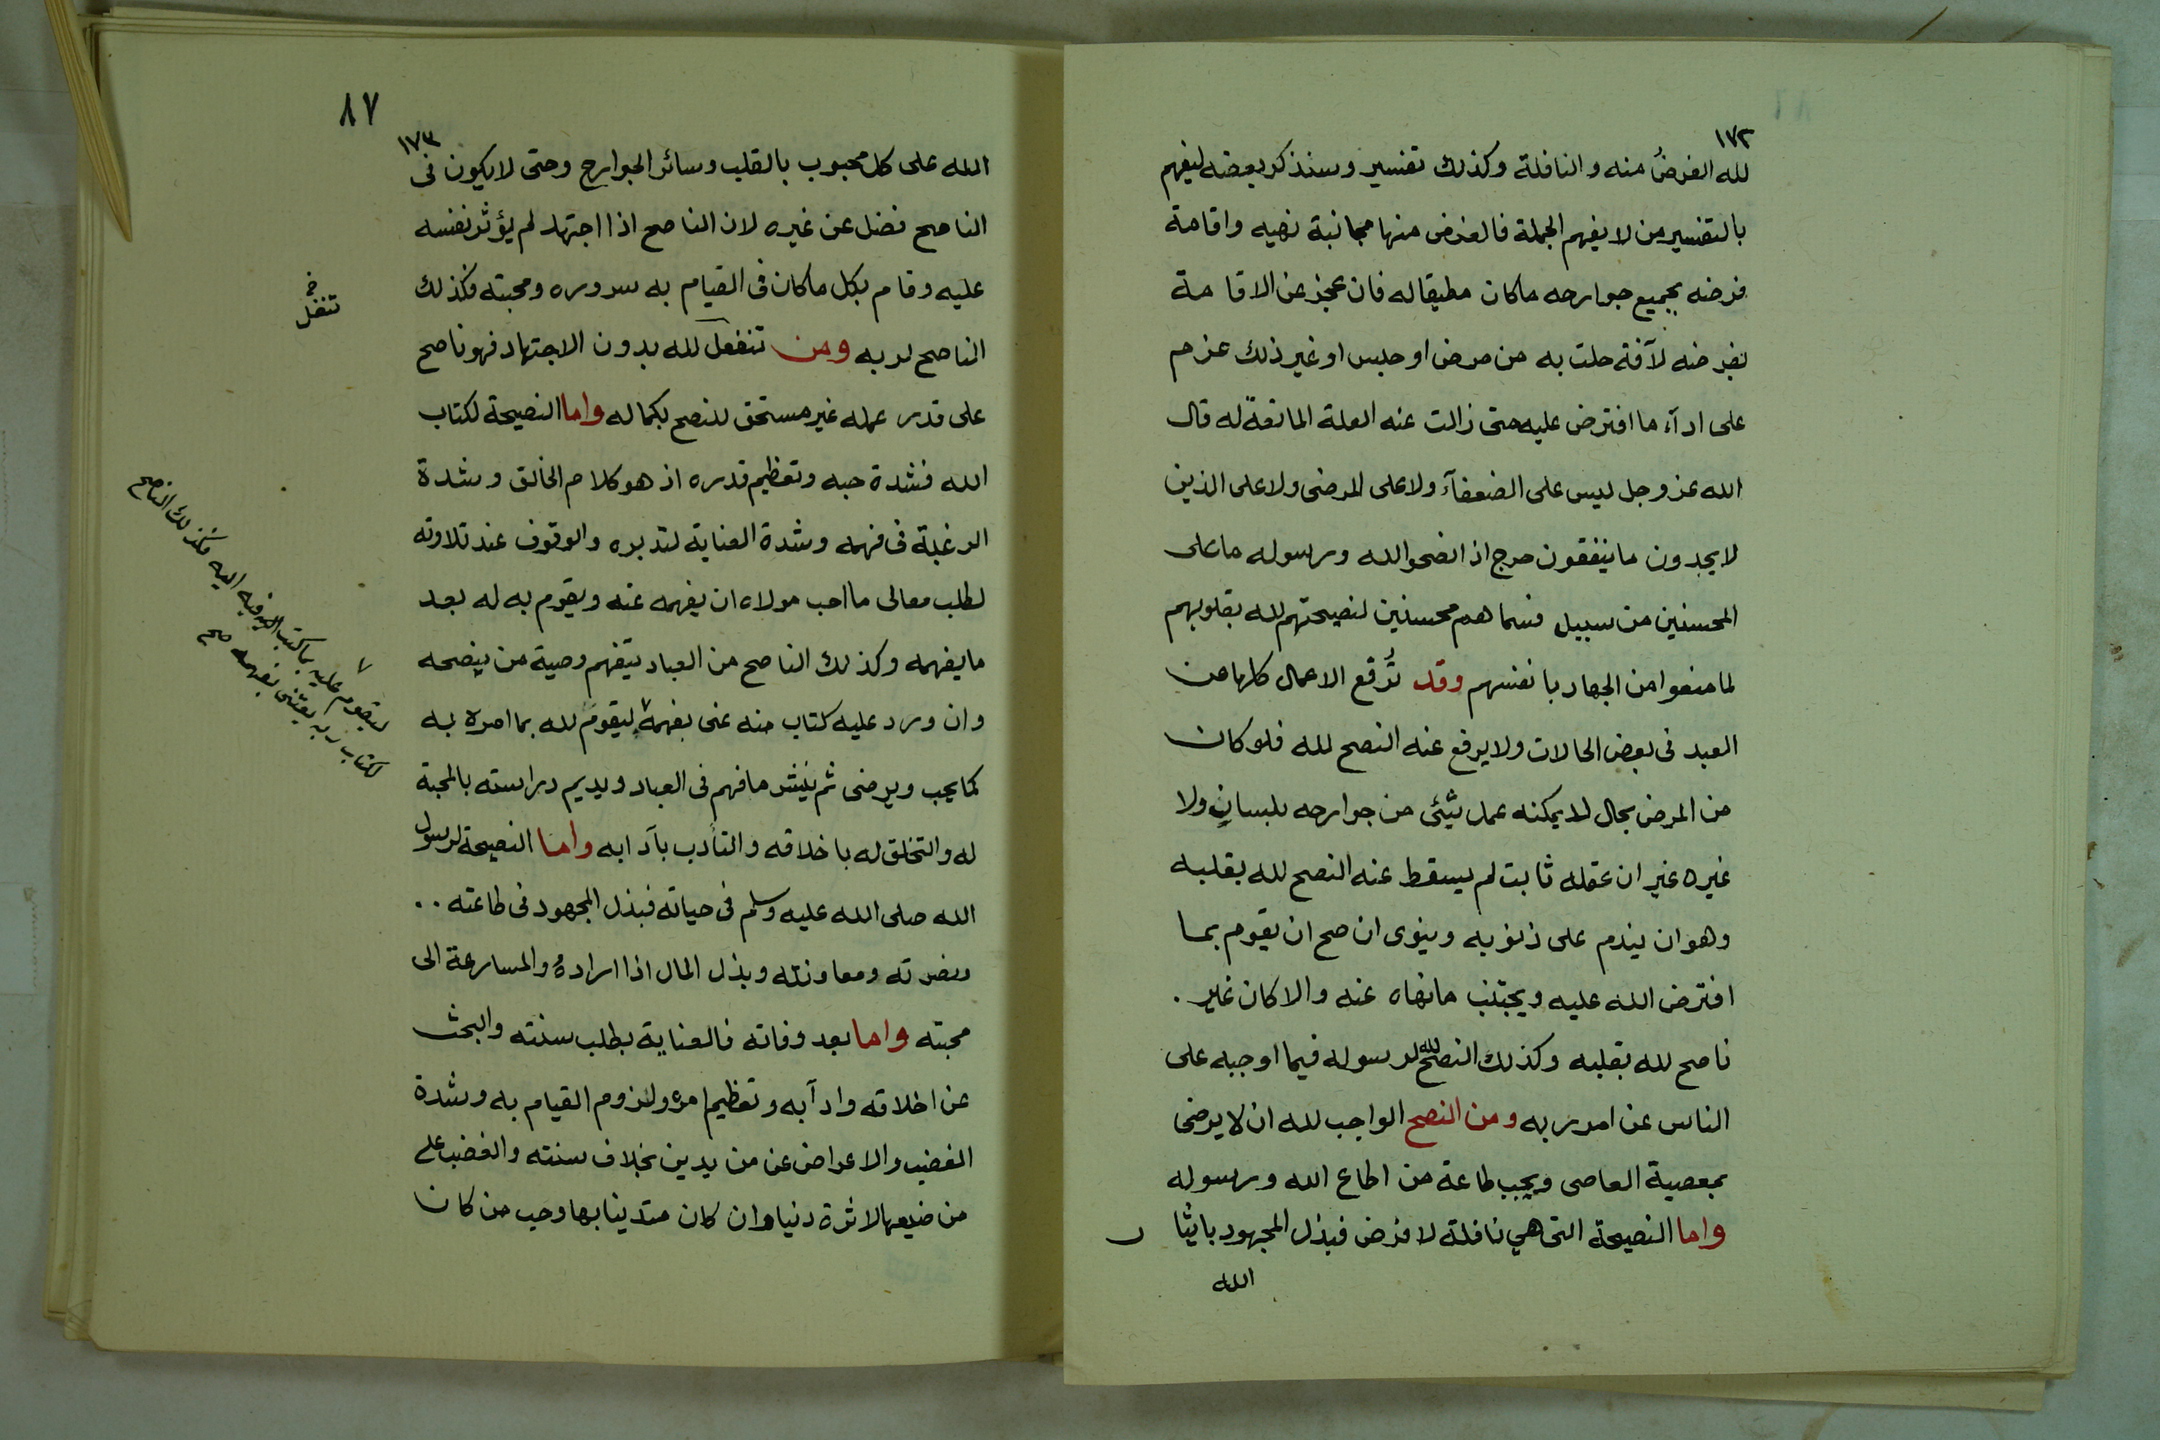 ١٧٢
لله الفرضُ منه والنافلة وكذلك تفسير وسنذكر بعضه ليفهم
بالتفسير من لا يفهم الجملة فالفرض منها مجانبة نهيه واقامة
فرضه بجميع جوارحه ما كان مطيقا له فان عجز عن الاقامة
بفرضه لآفة حلت به من مرض او حبس او غير ذلك عزم
على ادآء ما افترض عليه متى زالت عنه العلة المانعة له قال
الله عز وجل ليس على الضعفآء ولا على المرضى ولا على الذين
لا يجدون ما ينفقون حرج اذا نصحوا لله ورسوله ما على
المحسنين من سبيل فسماهم محسنين لنصيحتهم لله بقلوبهم
لما منعوا من الجهاد بانفسهم وقد تُرفع الاعمال كلها عن
العبد فى بعض الحالات ولا يرفع عنه النصح لله فلو كان
من المرض بحال لا يمكنه عمل شئ من جوارحه بلسان ولا
غيره غير ان عقله ثابت لم يسقط عنه النصح لله بقلبه
وهو ان يندم على ذنوبه وينوى ان صح ان يقوم بما
افترض الله عليه ويجتنب ما نهاه عنه والا كان غير .
ناصح لله بقلبه وكذلك النصح لله لرسوله فيما اوجبه على
الناس عن امر ربه ومن النصح الواجب لله ان لا يرضى
بمعصية العاصى ويحب طاعة من اطاع الله ورسوله
واما النصيحة التى هي نافلة لا فرض فبذل المجهود بايثار
الله
٨٧
١٧٣
الله على كل محبوب بالقلب وسائر الجوارح وحتى لا يكون فى
الناصح فضل عن غيره لان الناصح اذا اجتهد لم يؤثر نفسه
عليه وقام بكل ما كان فى القيام به سروره ومحبته فكذلك
الناصح لربه ومن تنفعل لله بدون الاجتهاد فهو ناصح
على قدر عمله غير مستحق للنصح بكماله واما النصيحة لكتاب
الله فشدة حبه وتعظيم قدره اذ هو كلام الخالق وشدة
الرغبة فى فهمه وشدة العناية لتدبره والوقوف عند تلاوته
لطلب معانى ما احب مولاه ان يفهمه عنه ويقوم به له بعد
ما يفهمه وكذلك الناصح من العباد يتفهم وصية من ينصحه
وان ورد عليه كتاب منه عنى بفهمه ليقوم لله بما امره به
كما يحب ويرضى ثم ينشر ما فهم فى العباد ويديم دراسته بالمحبة
له والتخلق له باخلاقه والتأدب بآدابه واما النصيحة لرسول
الله صلى الله عليه وسلم فى حياته فبذل المجهود فى طاعته . .
ونصرته ومعاونته وبذل المال اذا اراده والمسارعة الى
محبته واما بعد وفاته فالعناية بطلب سنته والبحث
عن اخلاقه وادآبه وتعظيم امره ولزوم القيام به وشدة
الغضب والاعراض عن من يدين بخلاف سنته والغضب على
من ضيعها لاثرة دنيا وان كان متدينا بها وحب من كان
خ
تنفل
ليقوم عليه بما كتب به فيه اليه فكذلك الناصح
لكتاب ربه يعتنى بفهمه صح